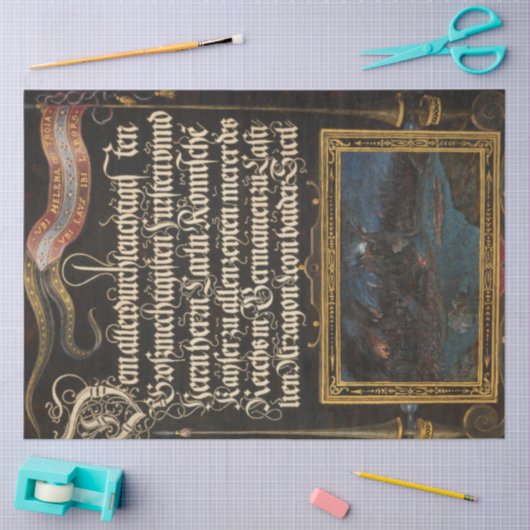 VBI HELENA IBI TROIA
VBI LAVS IBI LABORS
Dem allerdurchleuchtigisten
Großmechtigisten fürsten vnnd
herrn herrn Carln Römische
Kaÿser zu allen zeÿten merer des
Reichs in Germanien zu Casti
lien Arragon Leon baider Sicil